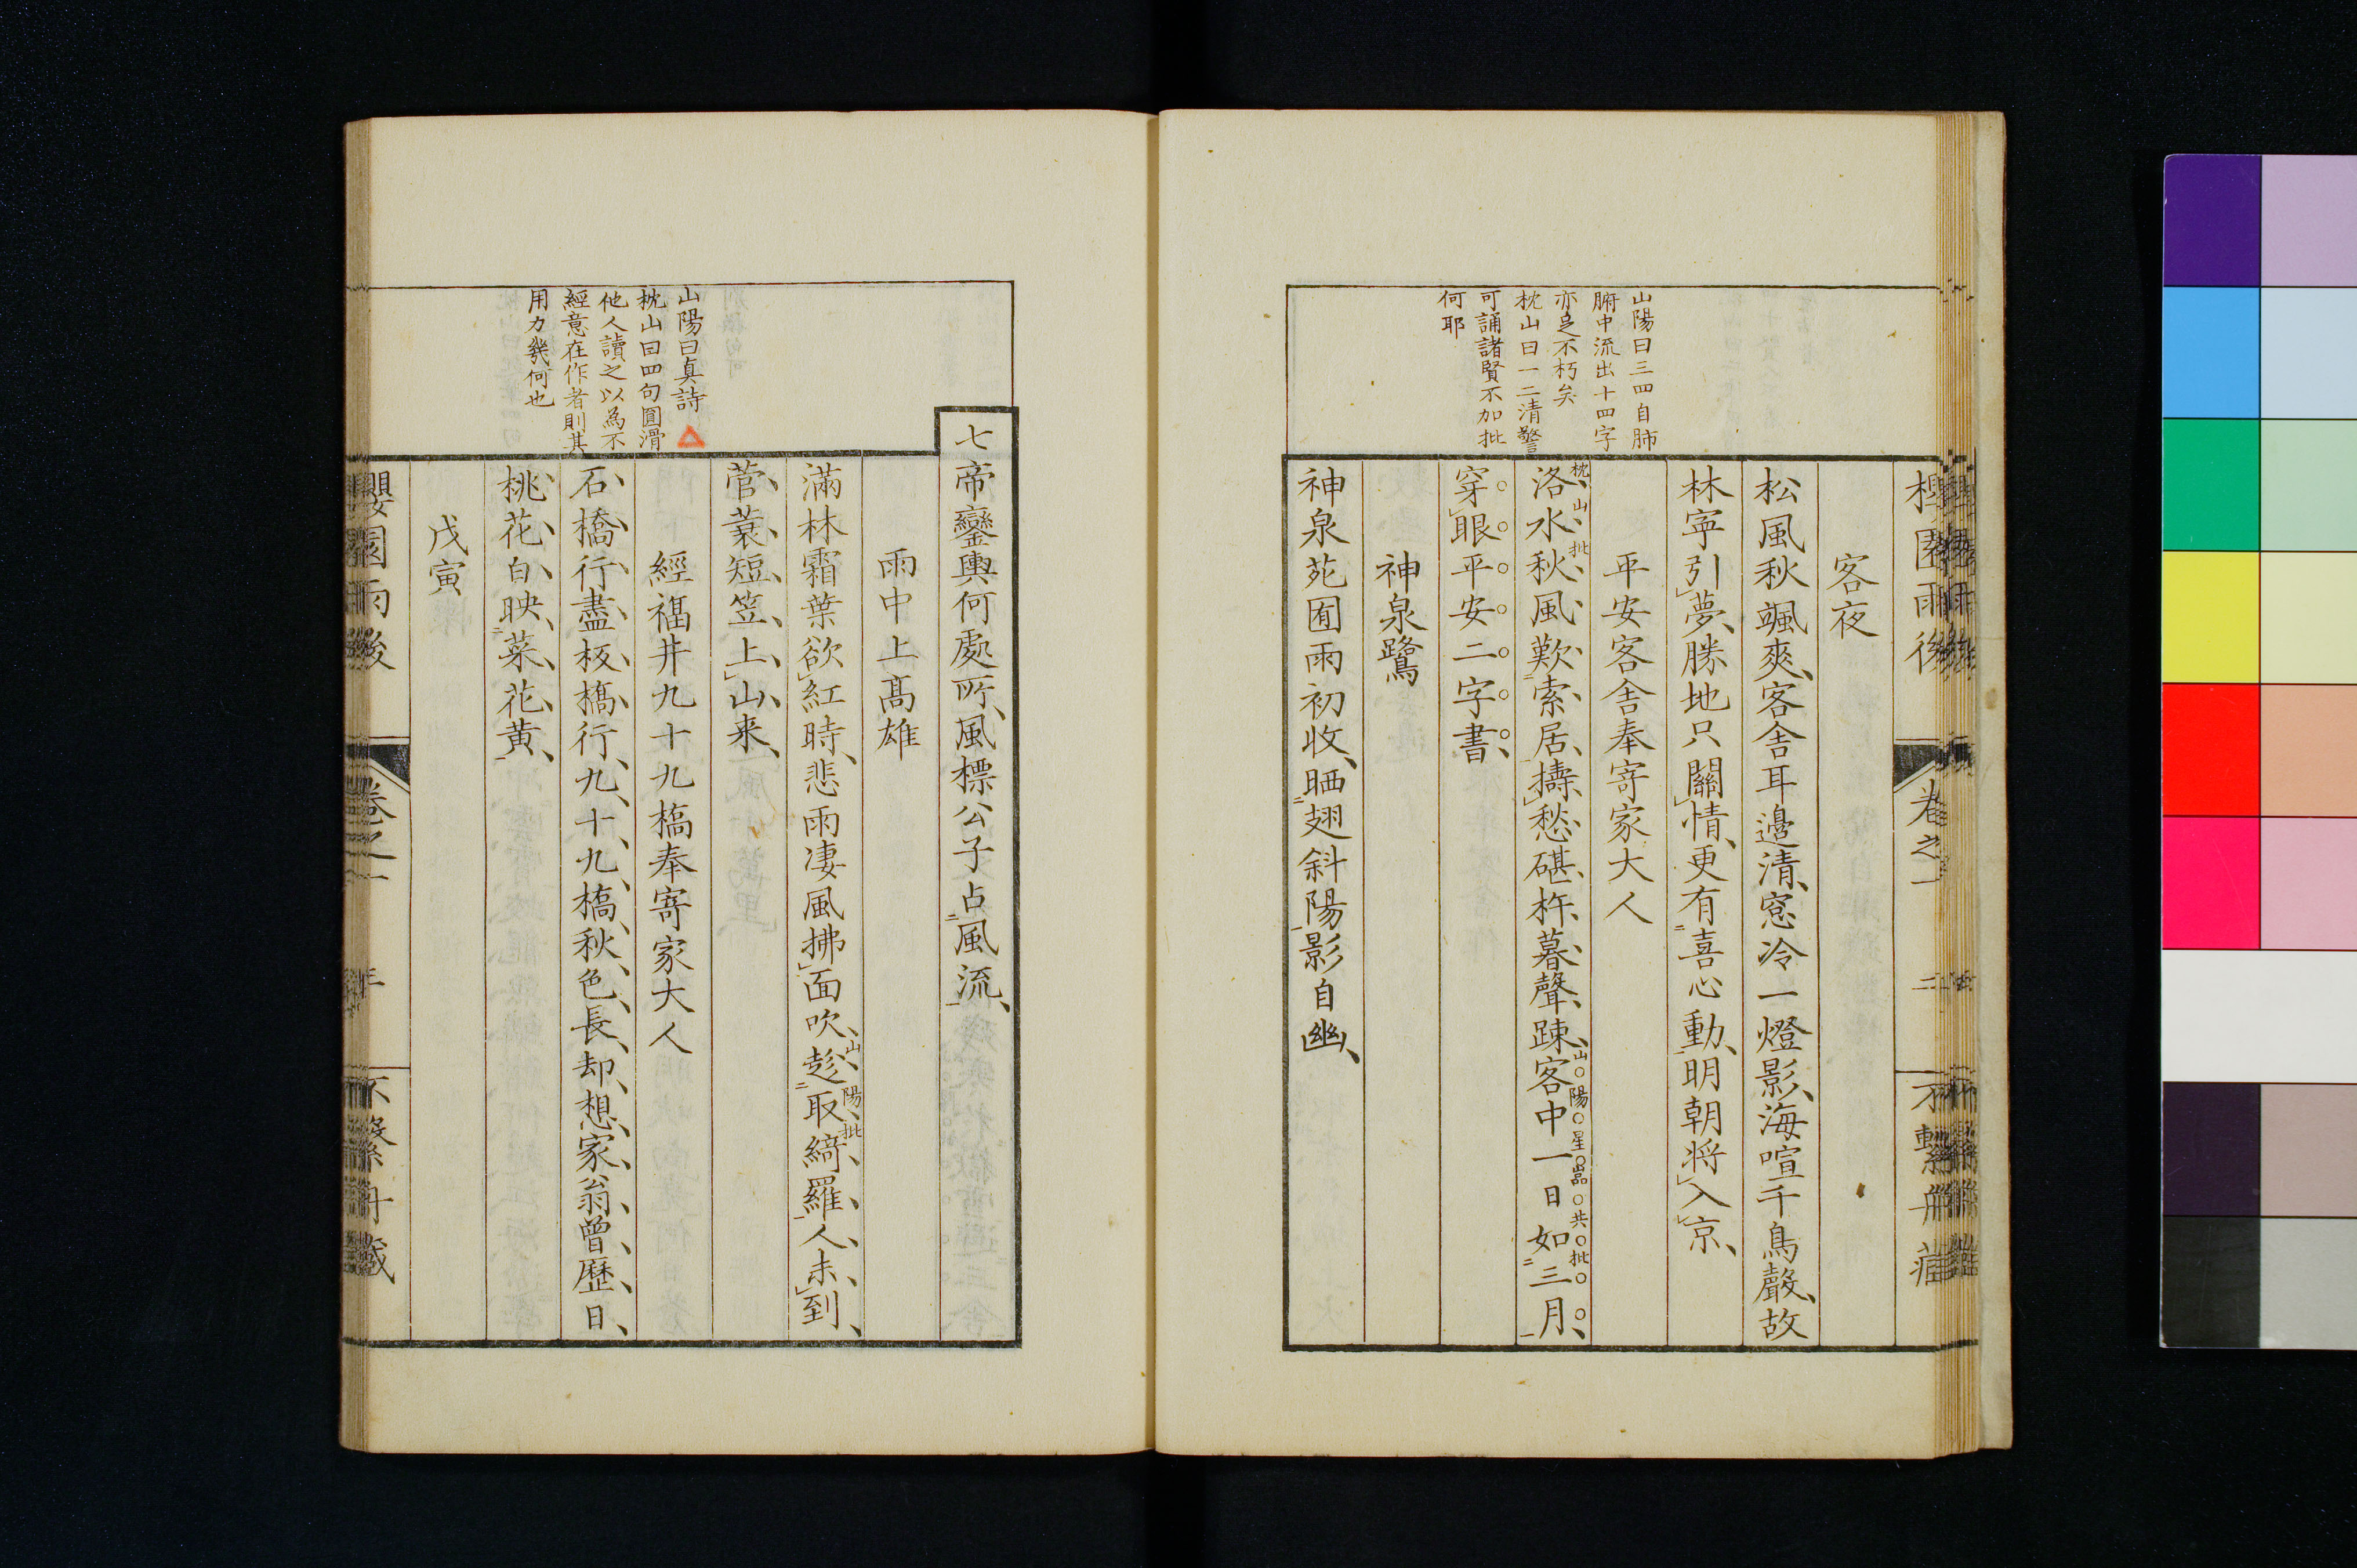 客夜
松風秋颯爽客舎耳邊清窓冷一燈影海喧千鳥聲故
林寧引夢勝地只關情更有喜心動明朝将入京
平安客舎奉寄家大人
枕山批
洛水秋風歎索居擣愁碪杵暮聲踈客中一日如三月
山陽星巖共批
穿眼平安二字書
神泉鷺
神泉苑囿雨初收晒翅斜陽影自幽
山陽曰三四自肺
腑中流出十四字
亦足不朽矣
枕山曰一二清警
可誦諸賢不加批
何耶
七帝鑾輿何處所風標公子占風流
雨中上髙雄
滿林霜葉欲紅時悲雨凄風拂面吹趁取綺羅人未到
山陽批
菅蓑短笠上山来
經福井九十九橋奉寄家大人
石橋行盡板橋行九十九橋秋色長却想家翁曾歴日
桃花白映菜花黄
戊寅
山陽曰真詩
枕山曰四句圓滑
他人讀之以為不
經意在作者則其
用力幾何也
卷之一